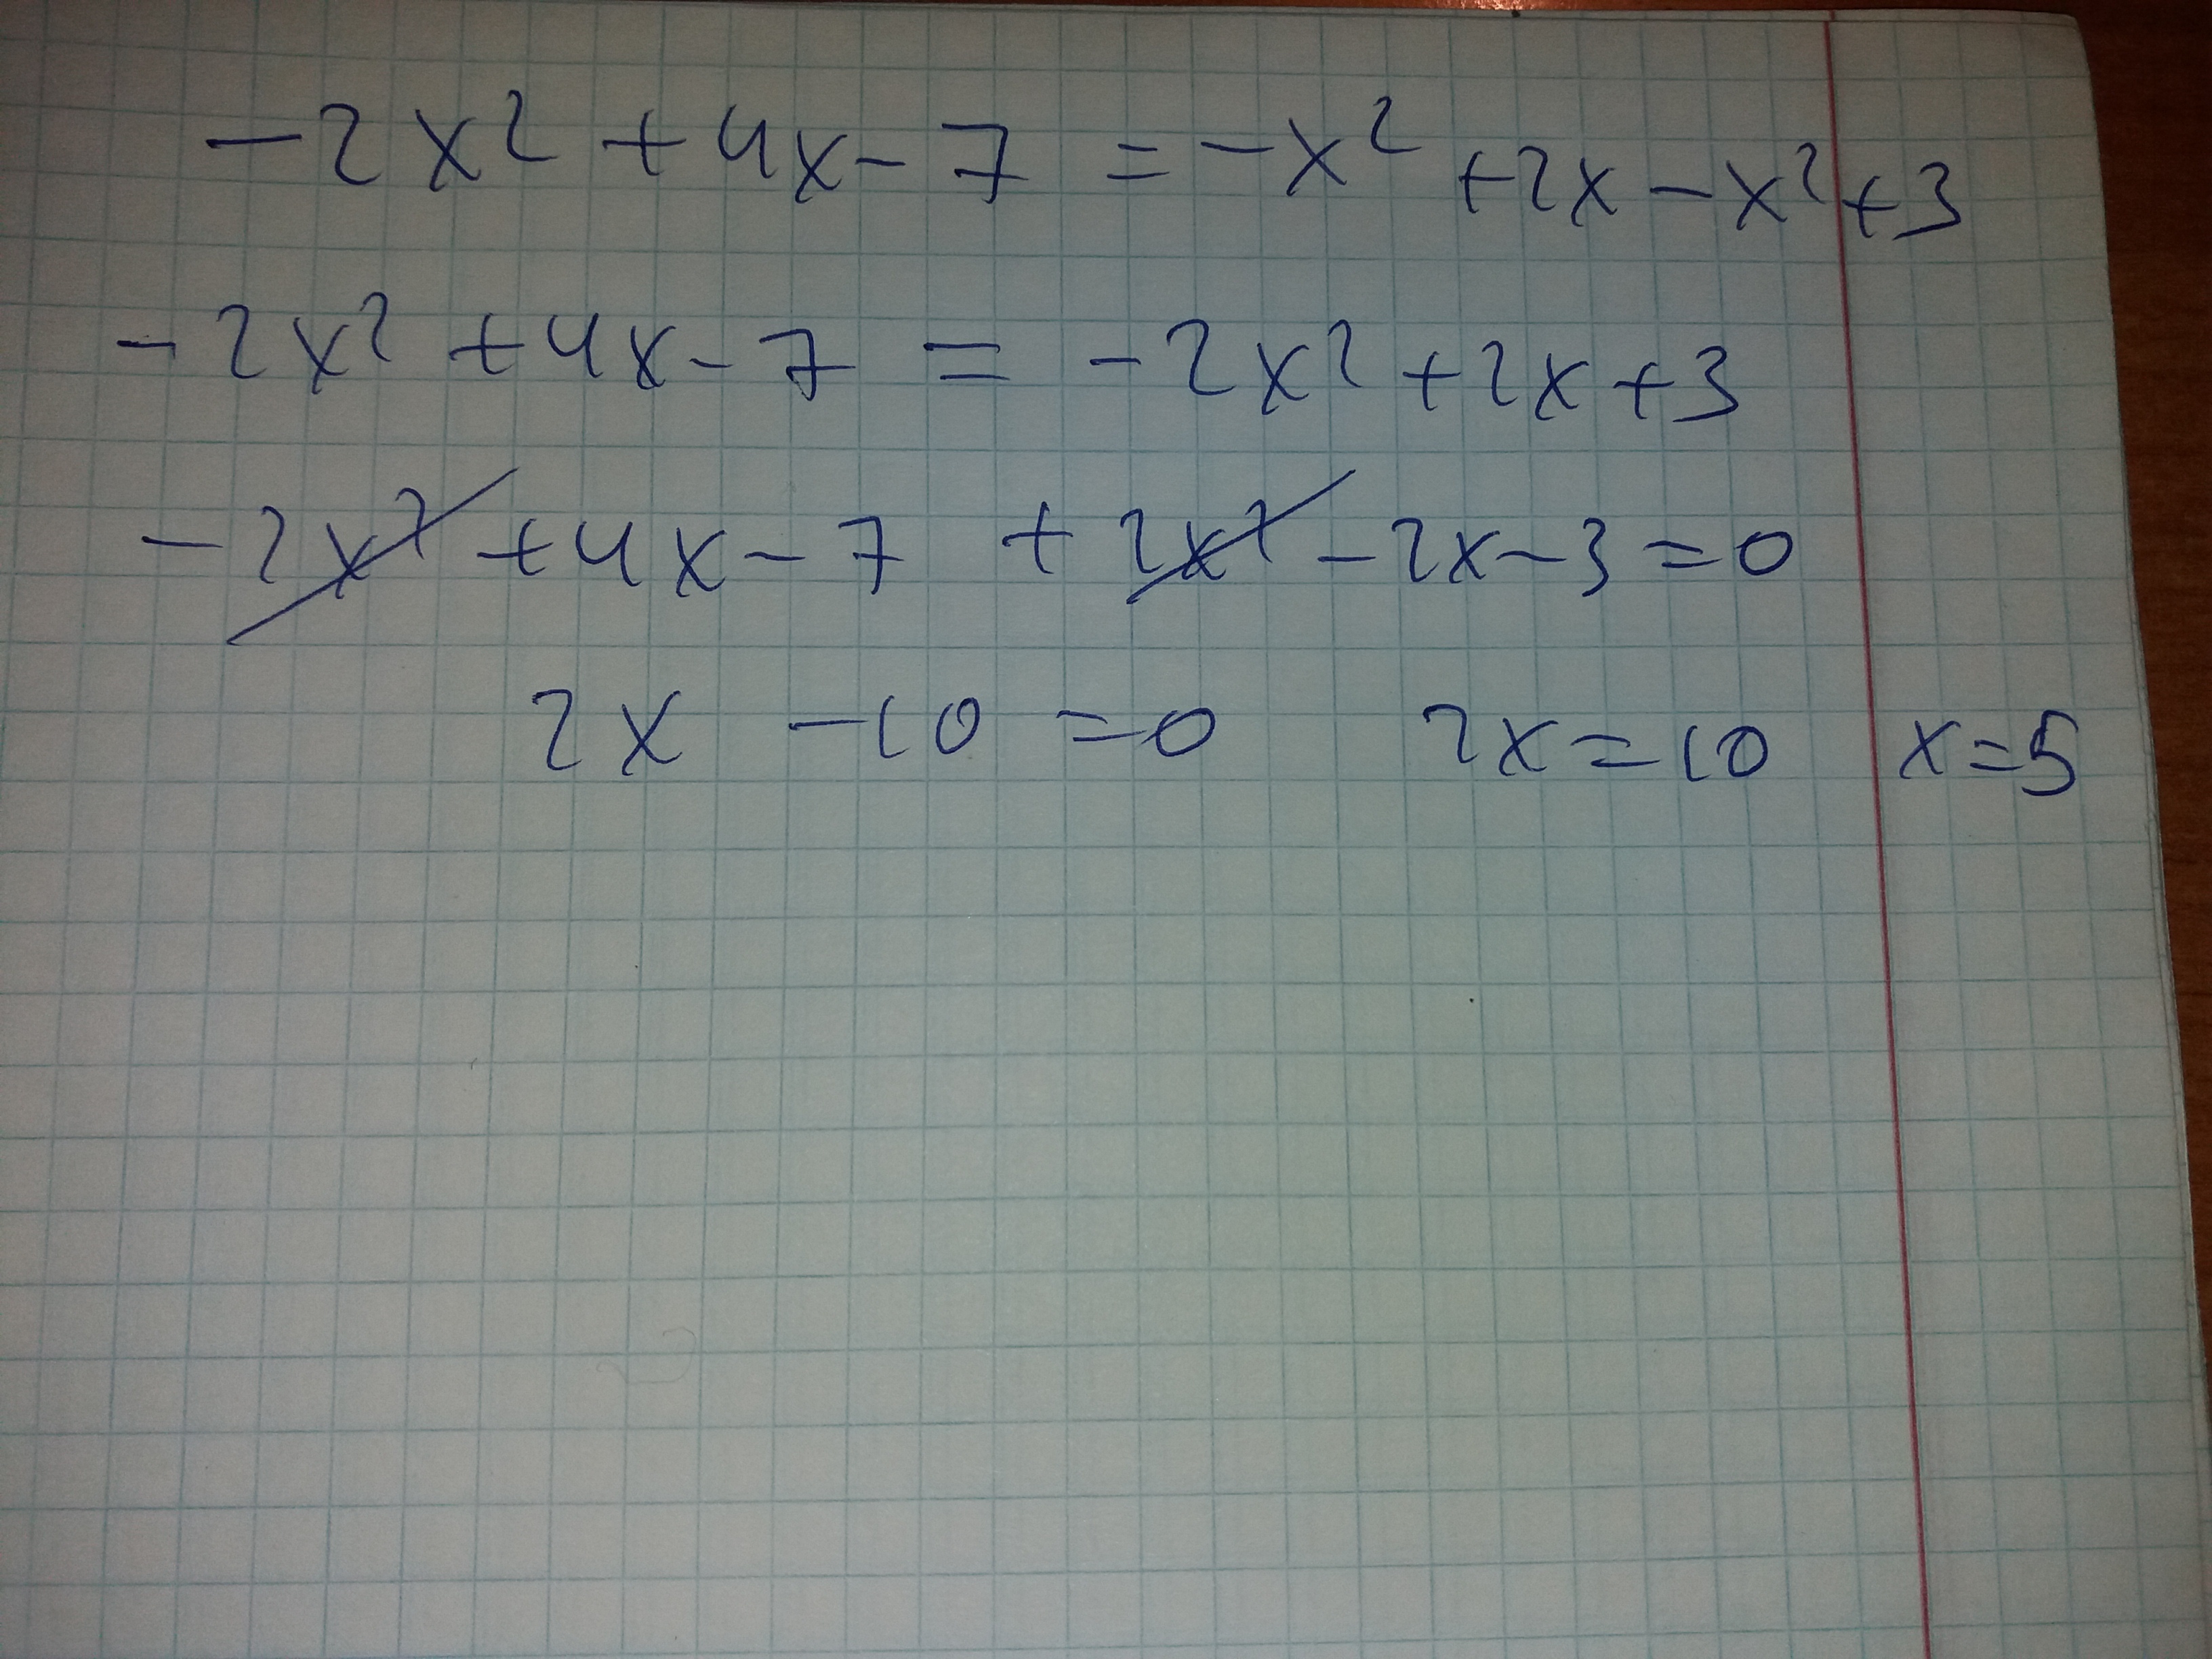 -2x² +4x-7 = -x² +2x-x²+3
-2x² +4x-7 = -2x²+2x+3
-2x² +4x-7 +2x²-2x-3=0
2x -10 =0 2x=10 x=5